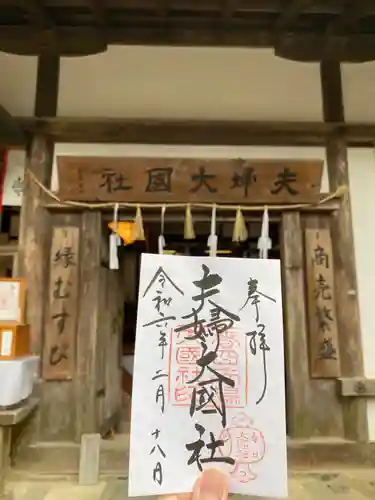 夫婦大國社
縁むすび
商売繁盛
奉拝
夫婦大国社
令和六年二月十八日